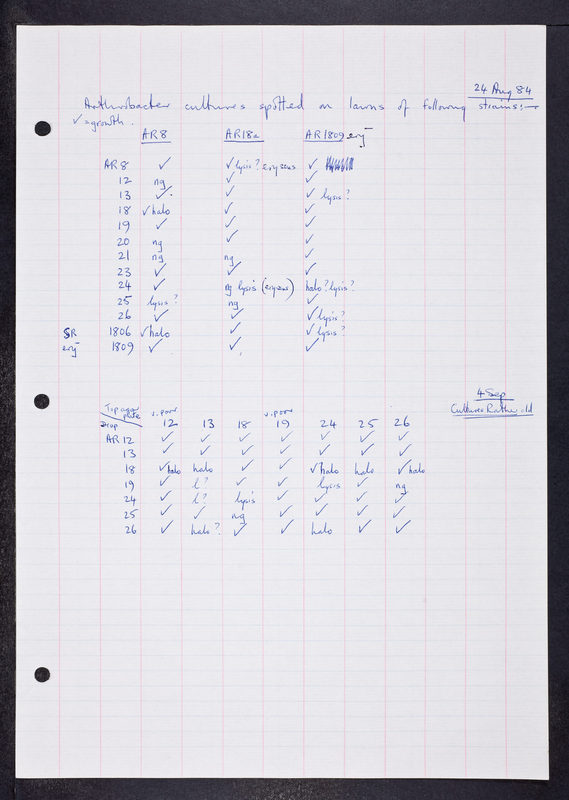 24 Aug 84
Arthrobacter cultures spotted on lawns of following strains:—
✓=growth.
AR8 AR18a AR1809 ery
AR8 ✓ ✓ lysis? ✓
12 ng ✓ ✓
13 ✓ ✓ ✓ lysis?
18 ✓halo ✓ ✓
19 ✓ ✓ ✓
20 ng ✓ ✓
21 ng ng ✓
23 ✓ ✓ ✓
24 ✓ ng lysis halo? lysis?
25 lysis? ng ✓
26 ✓ ✓ ✓ lysis?
SR 1806 ✓halo ✓ ✓ lysis?
ery 1809 ✓ ✓ ✓
4 Sep
Cultures Rather old
Top agar plate v.poor v.poor
Drop 12 13 18 19 24 25 26
AR12 ✓ ✓ ✓ ✓ ✓ ✓ ✓
13 ✓ ✓ ✓ ✓ ✓ ✓ ✓
18 ✓halo halo ✓ ✓ ✓halo halo ✓halo
19 ✓ l? ✓ ✓ lysis ✓ ng
24 ✓ l? lysis ✓ ✓ ✓ ✓
25 ✓ ✓ ng ✓ ✓ ✓ ✓
26 ✓ halo? ✓ ✓ halo ✓ ✓